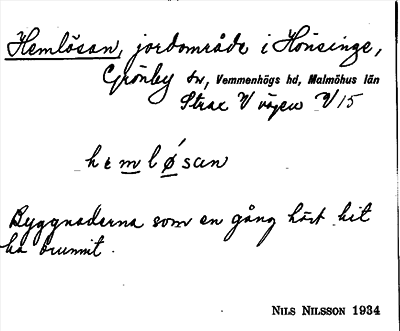 Hemlösan, jordområde i Hönsinge,
Grönby sn, Vemmenhögs hd, Malmöhus län
Strax V vägen 9/15
hemløsan
Byggnaderna som en gång hört hit
ha brunnit.
NILS NILSSON 1934